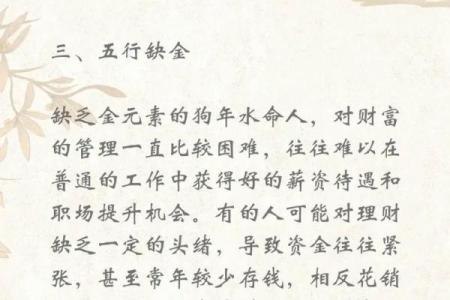 三、五行缺金
缺乏金元素的狗年水命人，对财富
的管理一直比较困难，往往难以在
普通的工作中获得好的薪资待遇和
职场提升机会。有的人可能对理财
缺乏一定的头绪，导致资金往往紧
张，甚至常年较少存钱，相反花销